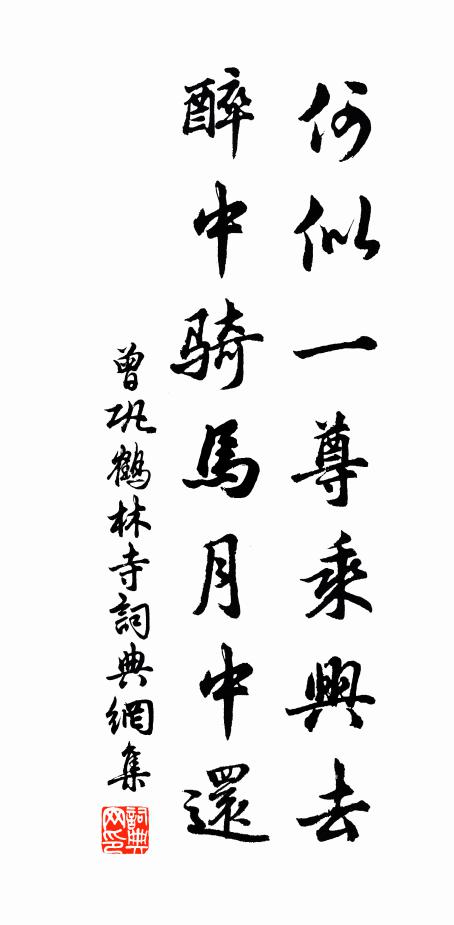 何似一尊乘興去
醉中騎馬月中還
曾鞏鶴林寺詞典網集
詞典網印